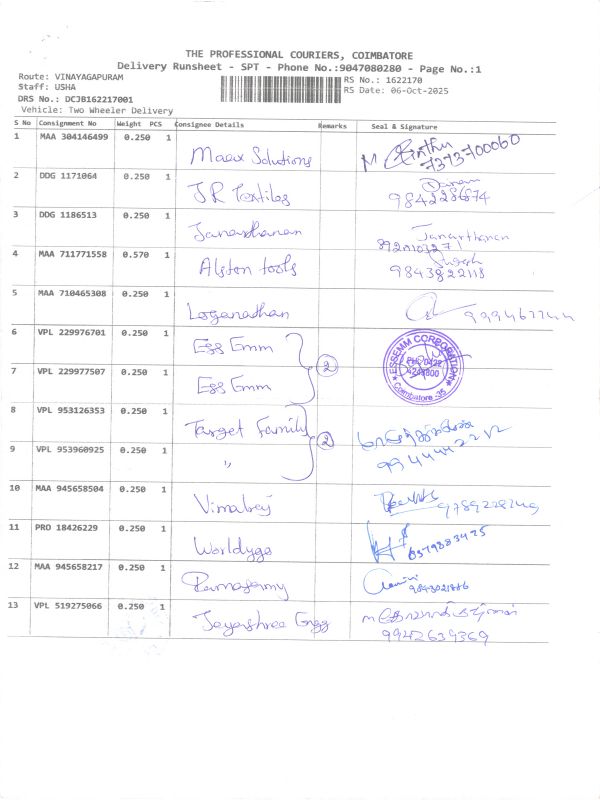 THE PROFESSIONAL COURIERS, COIMBATORE
Delivery Runsheet - SPT - Phone No.:9047080280 - Page No.:1
Route: VINAYAGAPURAM RS No.: 1622170
Staff: USHA RS Date: 06-Oct-2025
DRS No.: DCJB162217001
Vehicle: Two Wheeler Delivery
S No Consignment No Weight PCS Consignee Details Remarks Seal & Signature
1 MAA 304146499 0.250 1 Maax Solutions 7373700060
2 DDG 1171064 0.250 1 JR Textiles 9842286874
3 DDG 1186513 0.250 1 Janarthanan Janarthanan
4 MAA 711771558 0.570 1 Alston tools Suresh 9843822118
5 MAA 710465308 0.250 1 Loganathan
6 VPL 229976701 0.250 1 Ess Emm 2 ESSEMM CORPORATION
7 VPL 229977507 0.250 1 Ess Emm Coimbatore-35
8 VPL 953126353 0.250 1 Target Family 2
9 VPL 953960925 0.250 1 "
10 MAA 945658504 0.250 1 Vimalraj
11 PRO 18426229 0.250 1 Worldygo
12 MAA 945658217 0.250 1 Ramasamy
13 VPL 519275066 0.250 1 Jeyashree Engg 9942639369